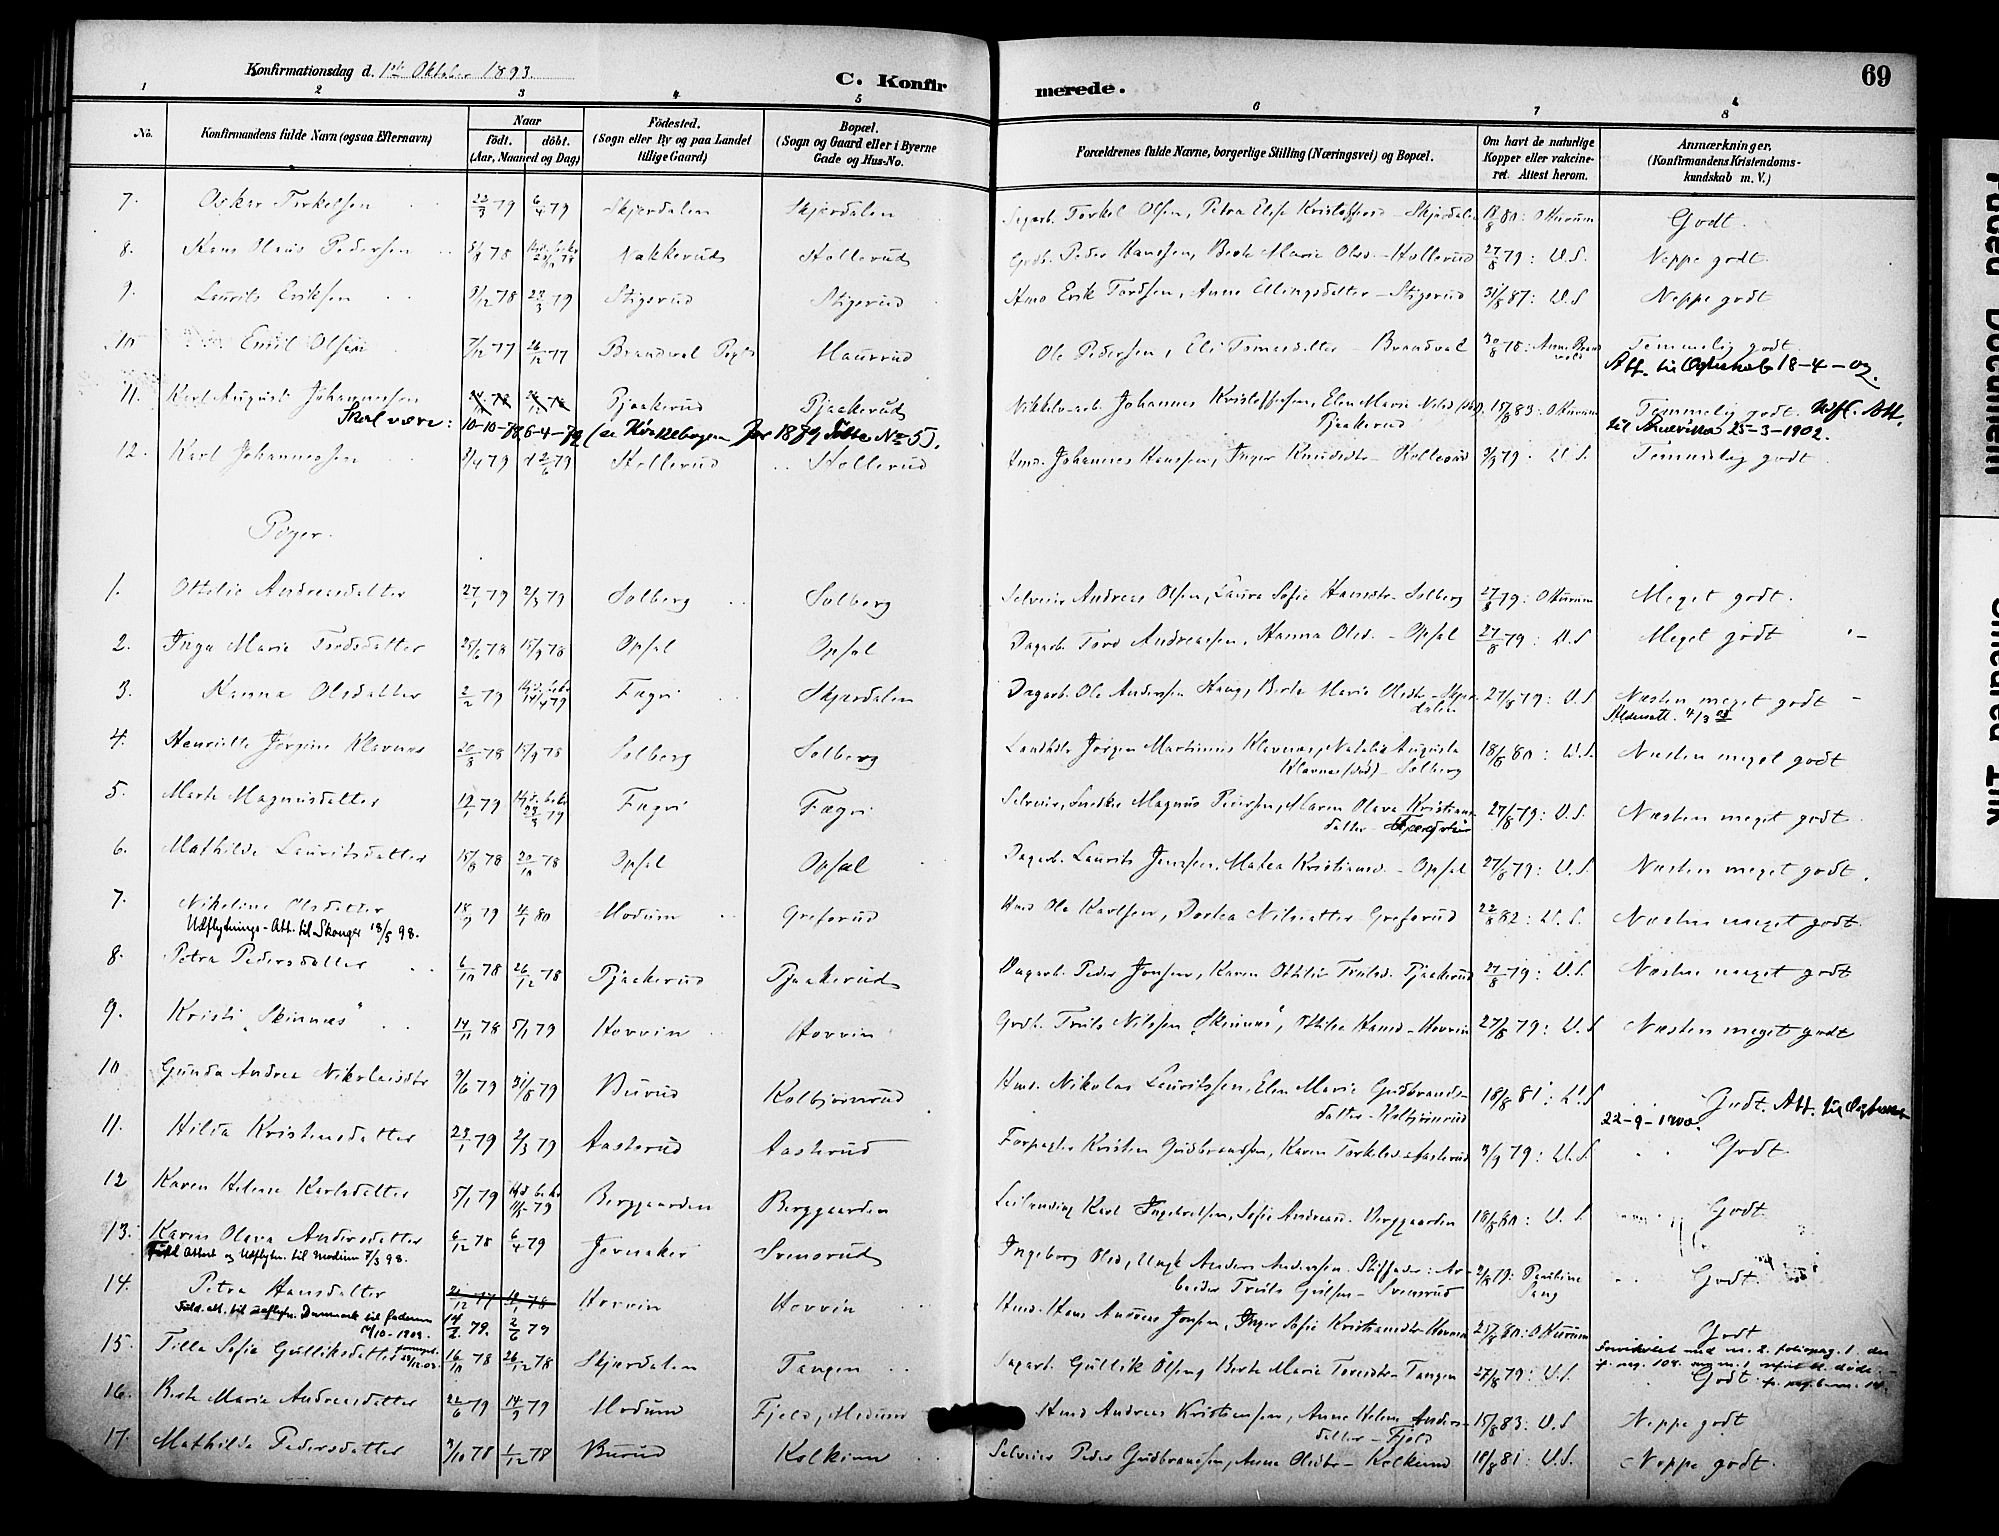 Konfirmationsdag d. 1ste Oktober 1893.
C. Konfirmerede.
69
1 2 3 4 5 6 7 8
No. Konfirmandens fulde Navn (ogsaa Efternavn)
Naar
födt. döbt.
(Aar, Maaned og Dag)
Födested.
(Sogn eller By og paa Landet tillige Gaard)
Bopæl.
(Sogn og Gaard eller i Byerne Gade og Hus-No.
Forældrenes fulde Navne, borgerlige Stilling (Næringsvei) og Bopæl.
Om havt de naturlige Kopper eller vakcineret. Attest herom.
Anmærkninger.
(Konfirmandens Kristendomskundskab m. V.)
7. Oskar Torkelsen 23/3 79 6/4 79 Skjærdalen Skjærdalen Torkel Olsen, Petra Elise Kristoffersd - Skjærdalen 18/8 80: O Hurum Godt.
8. Hans Olaus Pedersen 78 Nakkerud Hollerud Peder Hanssen, Berte Marie Olsd. - Hollerud 27/8 79: U.S. Neppe godt
9. Laurits Eriksen 3/12 78 23/3 79 Stigerud Stigerud Hmd Erik Tordsen, Anne Ellingsdatter - Stigerud 31/8 87: U.S Neppe godt
10 Emil Olsen 7/12 77 26/12 77 Brandval Maurrud Ole Pedersen, Eli Tomesdatter - Brandval 30/8 78: Temmelig godt.
Att. til 18-4-02.
11. Karl August Johannessen Pjaakerud Pjaakerud Johannes Kristoffersen, Elen Marie Nilsd (död) Pjaakerud 15/8 83: O Hurum Temmelig godt. Udfl. Att.
Skal være: 10-10-78 6-4-79 (se Kirkebogen for 1879 No 5).
til 25-3-1902.
12. Karl Johannessen 79 2/6 79 Hollerud Hollerud Hmd. Johannes Hanssen, Inger Knudsdtr - Hollerud 3/9 79: U.S. Temmelig godt
Piger.
1. Ottilie Andreasdatter 27/1 79 2/3 79 Solberg Solberg Selveier Andreas Olsen, Laura Sofie Hansdtr - Solberg 27/8 79: O Hurum Meget godt.
2. Inga Marie Tordsdatter 25/6 78 15/9 78 Opsal Opsal Dagarb. Tord Andreassen, Hanna Olsd. - Opsal 27/8 79: U.S Meget godt -
3. Hanna Olsdatter 2/2 79 Hjd. bekr. 14/4 79 Fægri Skjærdalen Dagarb. Ole Andersen Haug, Berte Marie Olsdtr - Skjærdalen 27/8 79: U.S Næsten meget godt
Aldersatt. 4/3
4. Henriette Jørgine Klavnæs 20/8 78 15/9 78 Solberg Solberg Landhdlr Jørgen Martinius Klavnæs, Natalie Augusta Klavnæs (död) - Solberg 18/8 80: U.S. Næsten meget godt
5. Marte Magnusdatter 19/1 79 Hjd. bekr. 23/3 79 Fægri Fægri Selveier, Snedker Magnus Pedersen, Maren Olava Kristiansdatter 27/8 79: U.S. Næsten meget godt.
6. Mathilde Lauritsdatter 15/8 78 20/10 78 Opsal Opsal Dagarb. Laurits Jenssen, Matea Kristiansd. - Opsal 27/8 79: U.S. Næsten meget godt.
7. Nikoline Olsdatter 18/9 79 4/1 80 Modum Greforud Hmd Ole Karlsen, Dortea Nilsdatter - Greforud 22/8 82: U.S. Næsten meget godt
Udflytnings-Att. til Skoger 18/5 98.
8. Petra Pedersdatter 6/10 78 26/12 78 Pjaakerud Pjaakerud Dagarb. Peder Jonsen, Karen Ottilie Trulsd. Pjaakerud 27/8 79: U.S Næsten meget godt
9. Kristi „Skinnæs" 14/11 78 5/1 79 Hovvin Hovvin Godb. Truls Nilssen „Skinnæs", Ottilie Hansd - Hovvin 27/8 79: U.S Næsten meget godt
10 Gunda Andrea Nikolaisdtr 9/6 79 31/8 79 Burud Kolbjørnrud Hmd. Nikolai Lauritssen, Elen Marie Gudbrandsdatter - Kolbjørnrud 18/8 81: U.S Godt. Att. til
22-9-1900.
11. Hilda Kristensdatter 23/1 79 2/3 79 Aasterud Aasterud Forpagter Kristen Gudbrandsen, Karen Torkelsd - Aasterud 3/9 79: U.S. Godt
12 Karen Helene Karlsdatter 5/1 79 Hjd. bekr. 79 Berggaarden Berggaarden Leilending Karl Ingebretsen, Sofie Andreasd. Berggaarden 18/8 80: U.S. Godt
13. Karen Olava Andersdatter 6/12 78 6/4 79 Jevnaker Svensrud Ingeborg Olsd, Ungk Anders Andersen. Stiffader: Arbeider Truls Gulsen - Svensrud 79: Pauline Godt
Attest og Udflytn. til Modum 7/3 98.
14. Petra Hansdatter 14/2 79. 2/6 79 Hovvin Hovvin Hmd. Hans Andreas Jonsen, Inger Sofie Kristiansdtr - Hovvin 25/8 80: O Hurum Godt
Danmark til 10-1909.
15. Tilla Sofie Gulliksdatter 16/10 78 26/12 78 Skjærdalen Tangen Sagarb. Gullik Olsen, Berte Marie Tordsdtr - Tangen 27/8 79: U.S Godt
16. Berte Marie Andreasdatter 22/6 79 14/9 79 Modum Fjeld, Modum Hmd Andreas Kristiansen, Anne Helene Andersdatter - Fjeld 15/8 83: U.S Neppe godt
17. Mathilde Pedersdatter 3/10 78 1/12 78 Burud Kolkinn Selveier Peder Gudbrandsen, Anne Olsdtr - Kolkinn 18/8 81: U.S. Neppe godt.